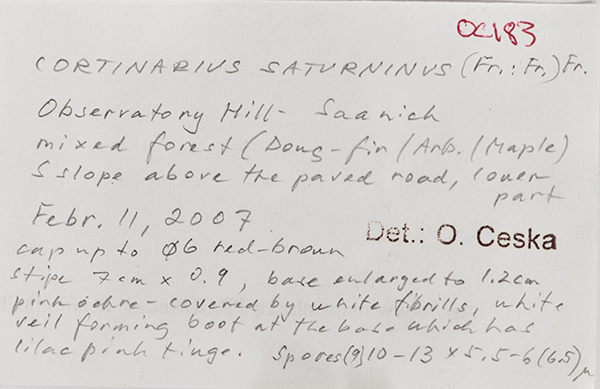 OC183
CORTINARIUS SATURNINUS (Fr.: Fr.) Fr.
Observatory Hill - Saanich
mixed forest (Doug-fir / Arb. / Maple)
S slope above the paved road, lower
part
Febr. 11, 2007
Det.: O. Ceska
cap up to Ø6 red-brown
stipe 7cm x 0.9, base enlarged to 1.2cm
pink ochre - covered by white fibrills, white
veil forming boot at the base which has
lilac pink tinge. Spores (9)10 - 13 x 5.5 - 6 (6.5) µ